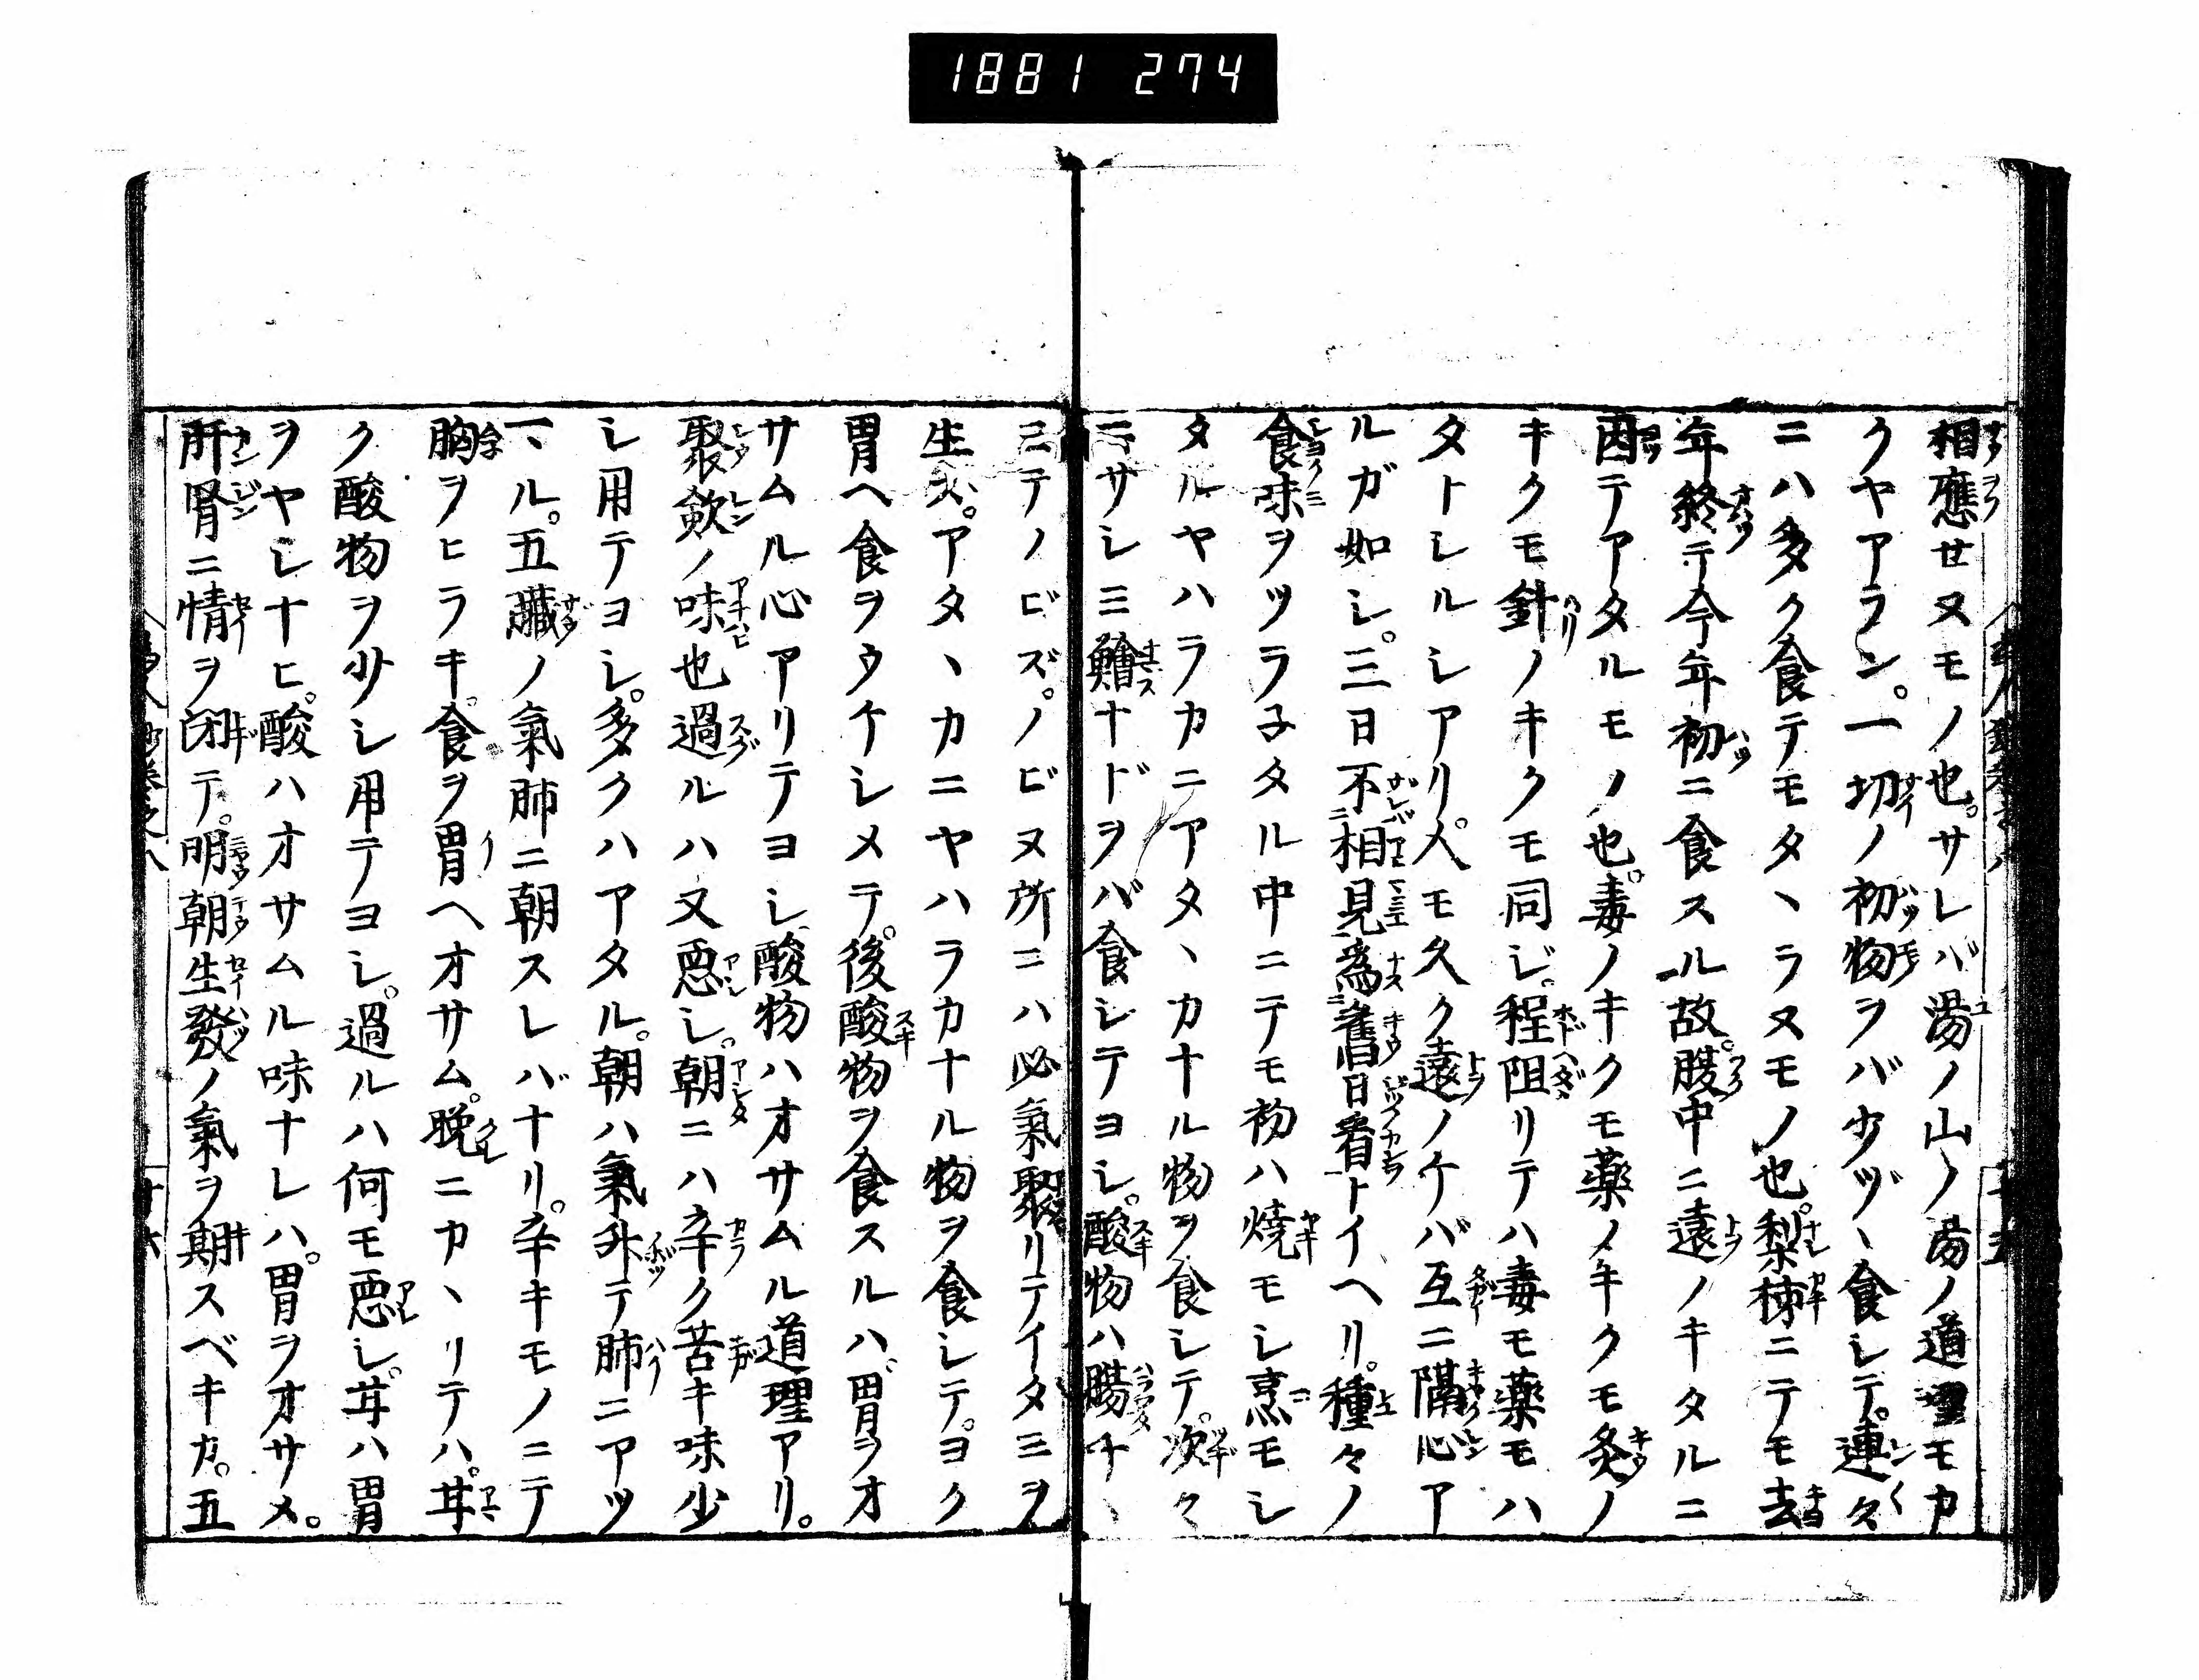 1881 274
相應セヌモノ也。サレバ湯ノ山ノ湯ノ道理モカ
クヤアラン。一切ノ初物ヲバ少ヅヽ食シテ。連々
ニハ多ク食テモタヽラヌモノ也。梨柿ニテモ去
年終テ今年初ニ食スル故。腹中ニ遠ノキタルニ
因テアタルモノ也。毒ノキクモ薬ノキクモ灸ノ
キクモ針ノキクモ同ジ。程阻リテハ毒モ薬モハ
タトシルシアリ。人モ久ク遠ノケバ互ニ隔心ア
ルガ如シ。三日不相見為舊日看トイヘリ。種々ノ
食味ヲツラ子タル中ニテモ初ハ燒モシ烹モシ
タルヤハラカニアタヽカナル物ヲ食シテ。次々
ニサシミ鱠ナドヲバ食シテヨシ。酸物ハ腸チヽ
ミテノビズ。ノビヌ所ニハ必氣聚リテイタミヲ
生ズ。アタヽカニヤハラカナル物ヲ食シテ。ヨク
胃ヘ食ヲウケシメテ。後酸物ヲ食スルハ。胃ヲオ
サムル心アリテヨシ。酸物ハオサムル道理アリ。
聚歛ノ味也過ルハ又惡シ。朝ニハ辛ク苦キ味少
シ用テヨシ。多クハアタル。朝ハ氣外テ肺ニアツ
マル。五臟ノ氣肺ニ朝スレバナリ。辛キモノニテ
胸ヲヒラキ。食ヲ胃ヘオサム。晩ニカヽリテハ。甘
ク酸物ヲ少シ用テヨシ。過ルハ何モ惡シ。甘ハ胃
ヲヤシナヒ。酸ハオサムル味ナレハ。胃ヲオサメ。
肝腎ニ情ヲ閉テ。明朝生發ノ氣ヲ期スベキカ。五